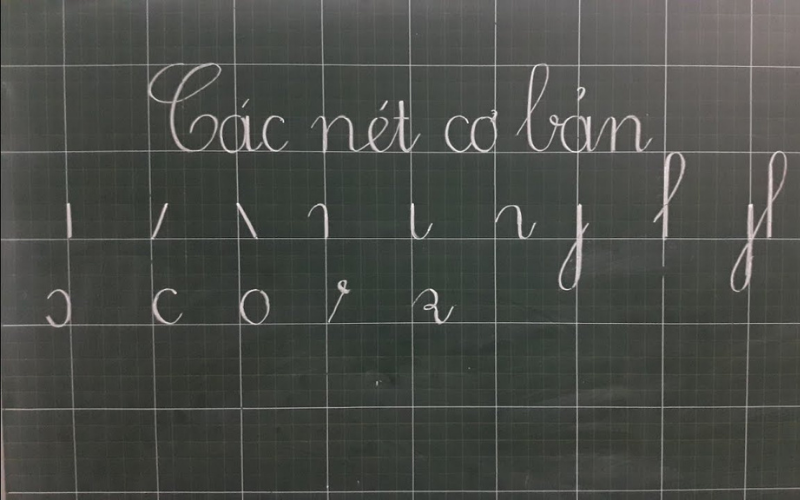 Các nét cơ bản